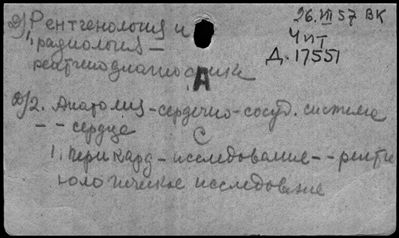 а) Рентгенология и
1, радиология –
рентгенодиагностика
26.VII 57 ВК
Чит
Д. 17551
А
б) 2. Анатомия - сердечно-сосуд. система
– – сердце
С
1, перикард – исследование – – рентге
нологическое исследование